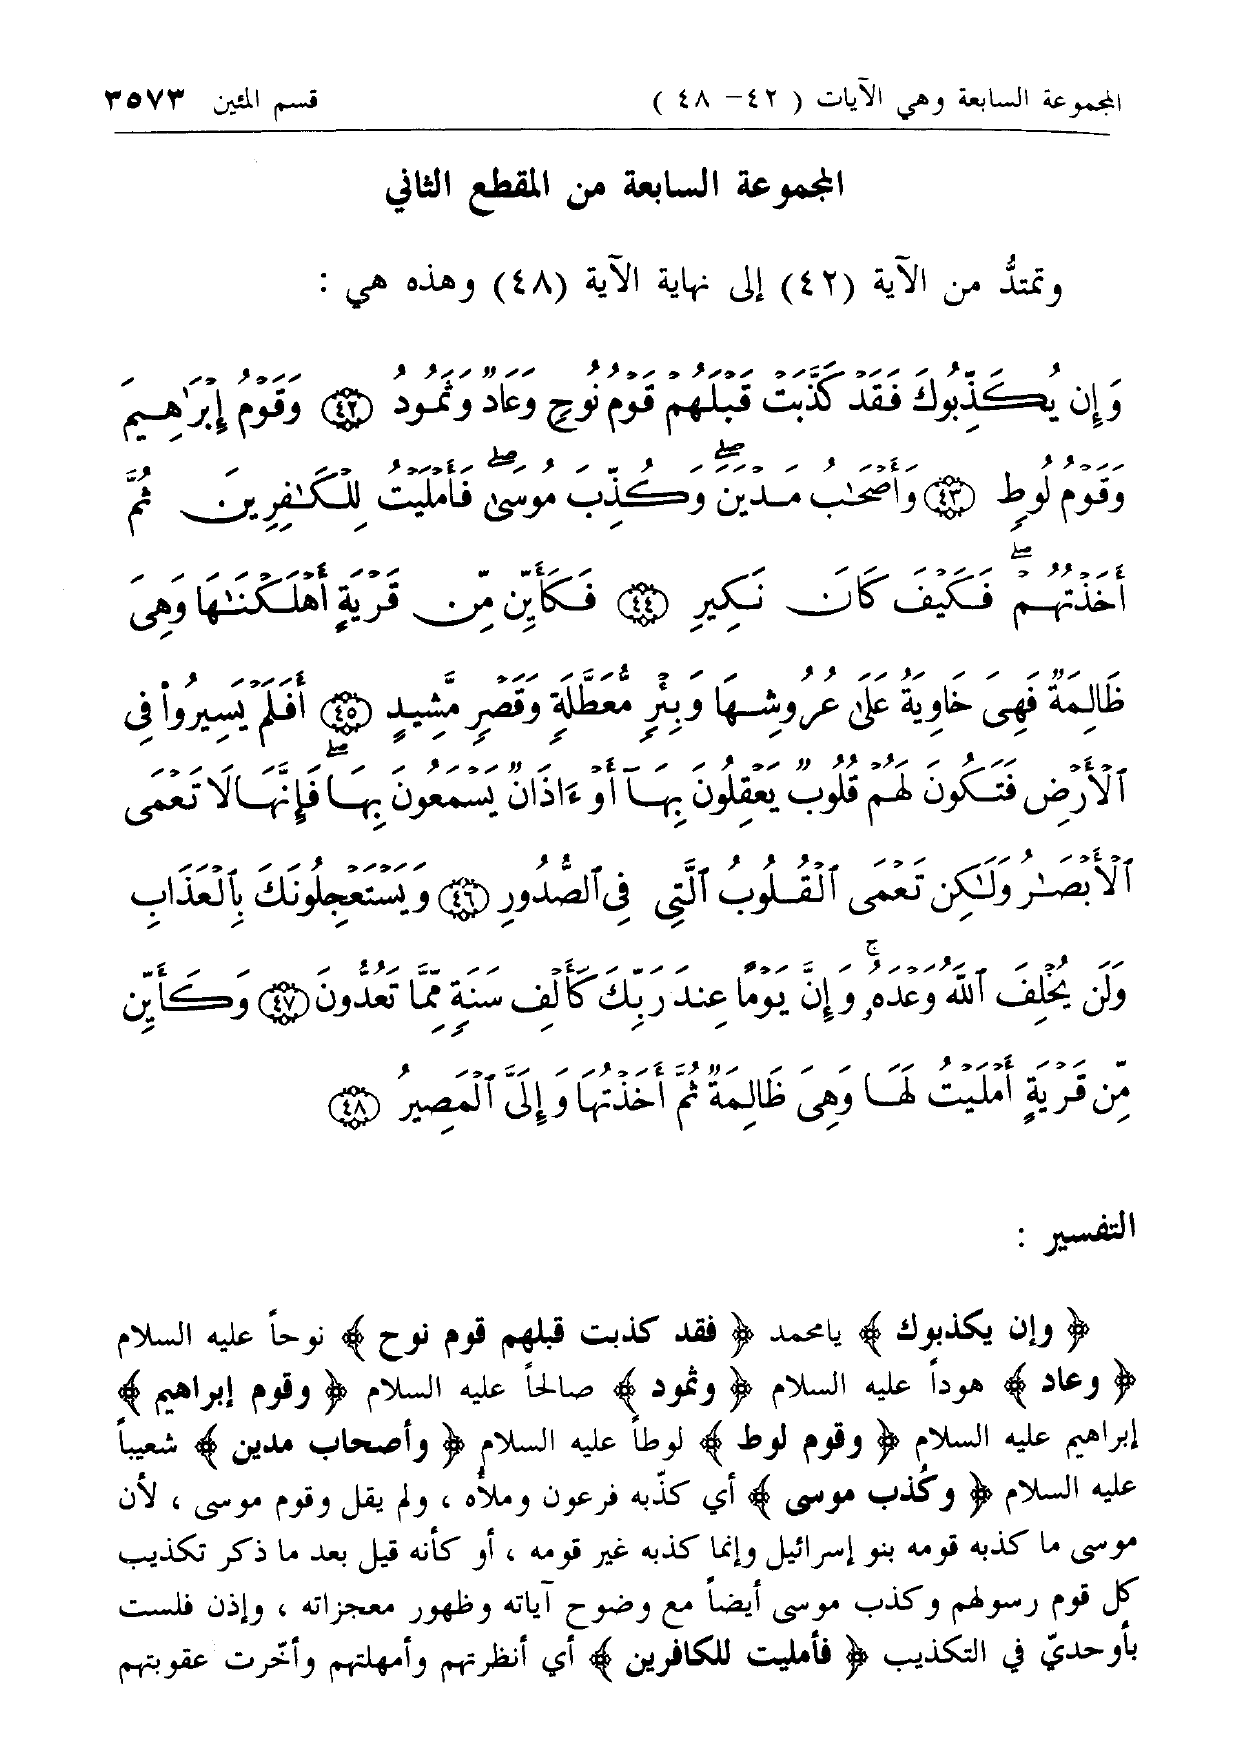 المجموعة السابعة وهي الآيات ( ٤٢ – ٤٨ ) قسم المئين ٣٥٧٣
المجموعة السابعة من المقطع الثاني
وتمتدُّ من الآية (٤٢) إلى نهاية الآية (٤٨) وهذه هي :
وَإِن يُكَذِّبُوكَ فَقَدْ كَذَّبَتْ قَبْلَهُمْ قَوْمُ نُوحٍ وَعَادٌ وَثَمُودُ ﴿٤٢﴾ وَقَوْمُ إِبْرَٰهِيمَ
وَقَوْمُ لُوطٍ ﴿٤٣﴾ وَأَصْحَٰبُ مَدْيَنَ ۖ وَكُذِّبَ مُوسَىٰ ۖ فَأَمْلَيْتُ لِلْكَٰفِرِينَ ثُمَّ
أَخَذْتُهُمْ ۖ فَكَيْفَ كَانَ نَكِيرِ ﴿٤٤﴾ فَكَأَيِّن مِّن قَرْيَةٍ أَهْلَكْنَٰهَا وَهِىَ
ظَالِمَةٌ فَهِىَ خَاوِيَةٌ عَلَىٰ عُرُوشِهَا وَبِئْرٍ مُّعَطَّلَةٍ وَقَصْرٍ مَّشِيدٍ ﴿٤٥﴾ أَفَلَمْ يَسِيرُوا۟ فِى
ٱلْأَرْضِ فَتَكُونَ لَهُمْ قُلُوبٌ يَعْقِلُونَ بِهَآ أَوْ ءَاذَانٌ يَسْمَعُونَ بِهَا ۖ فَإِنَّهَا لَا تَعْمَى
ٱلْأَبْصَٰرُ وَلَٰكِن تَعْمَى ٱلْقُلُوبُ ٱلَّتِى فِى ٱلصُّدُورِ ﴿٤٦﴾ وَيَسْتَعْجِلُونَكَ بِٱلْعَذَابِ
وَلَن يُخْلِفَ ٱللَّهُ وَعْدَهُۥ ۚ وَإِنَّ يَوْمًا عِندَ رَبِّكَ كَأَلْفِ سَنَةٍ مِّمَّا تَعُدُّونَ ﴿٤٧﴾ وَكَأَيِّن
مِّن قَرْيَةٍ أَمْلَيْتُ لَهَا وَهِىَ ظَالِمَةٌ ثُمَّ أَخَذْتُهَا وَإِلَىَّ ٱلْمَصِيرُ ﴿٤٨﴾
التفسير :
﴿ وإن يكذبوك ﴾ يامحمد ﴿ فقد كذبت قبلهم قوم نوح ﴾ نوحاً عليه السلام
﴿ وعاد ﴾ هوداً عليه السلام ﴿ وثمود ﴾ صالحاً عليه السلام ﴿ وقوم إبراهيم ﴾
إبراهيم عليه السلام ﴿ وقوم لوط ﴾ لوطاً عليه السلام ﴿ وأصحاب مدين ﴾ شعيباً
عليه السلام ﴿ وكُذب موسى ﴾ أي كذّبه فرعون وملأه ، ولم يقل وقوم موسى ، لأن
موسى ما كذبه قومه بنو إسرائيل وإنما كذبه غير قومه ، أو كأنه قيل بعد ما ذكر تكذيب
كل قوم رسولهم وكذب موسى أيضاً مع وضوح آياته وظهور معجزاته ، وإذن فلست
بأوحديّ في التكذيب ﴿ فأمليت للكافرين ﴾ أي أنظرتهم وأمهلتهم وأخّرت عقوبتهم